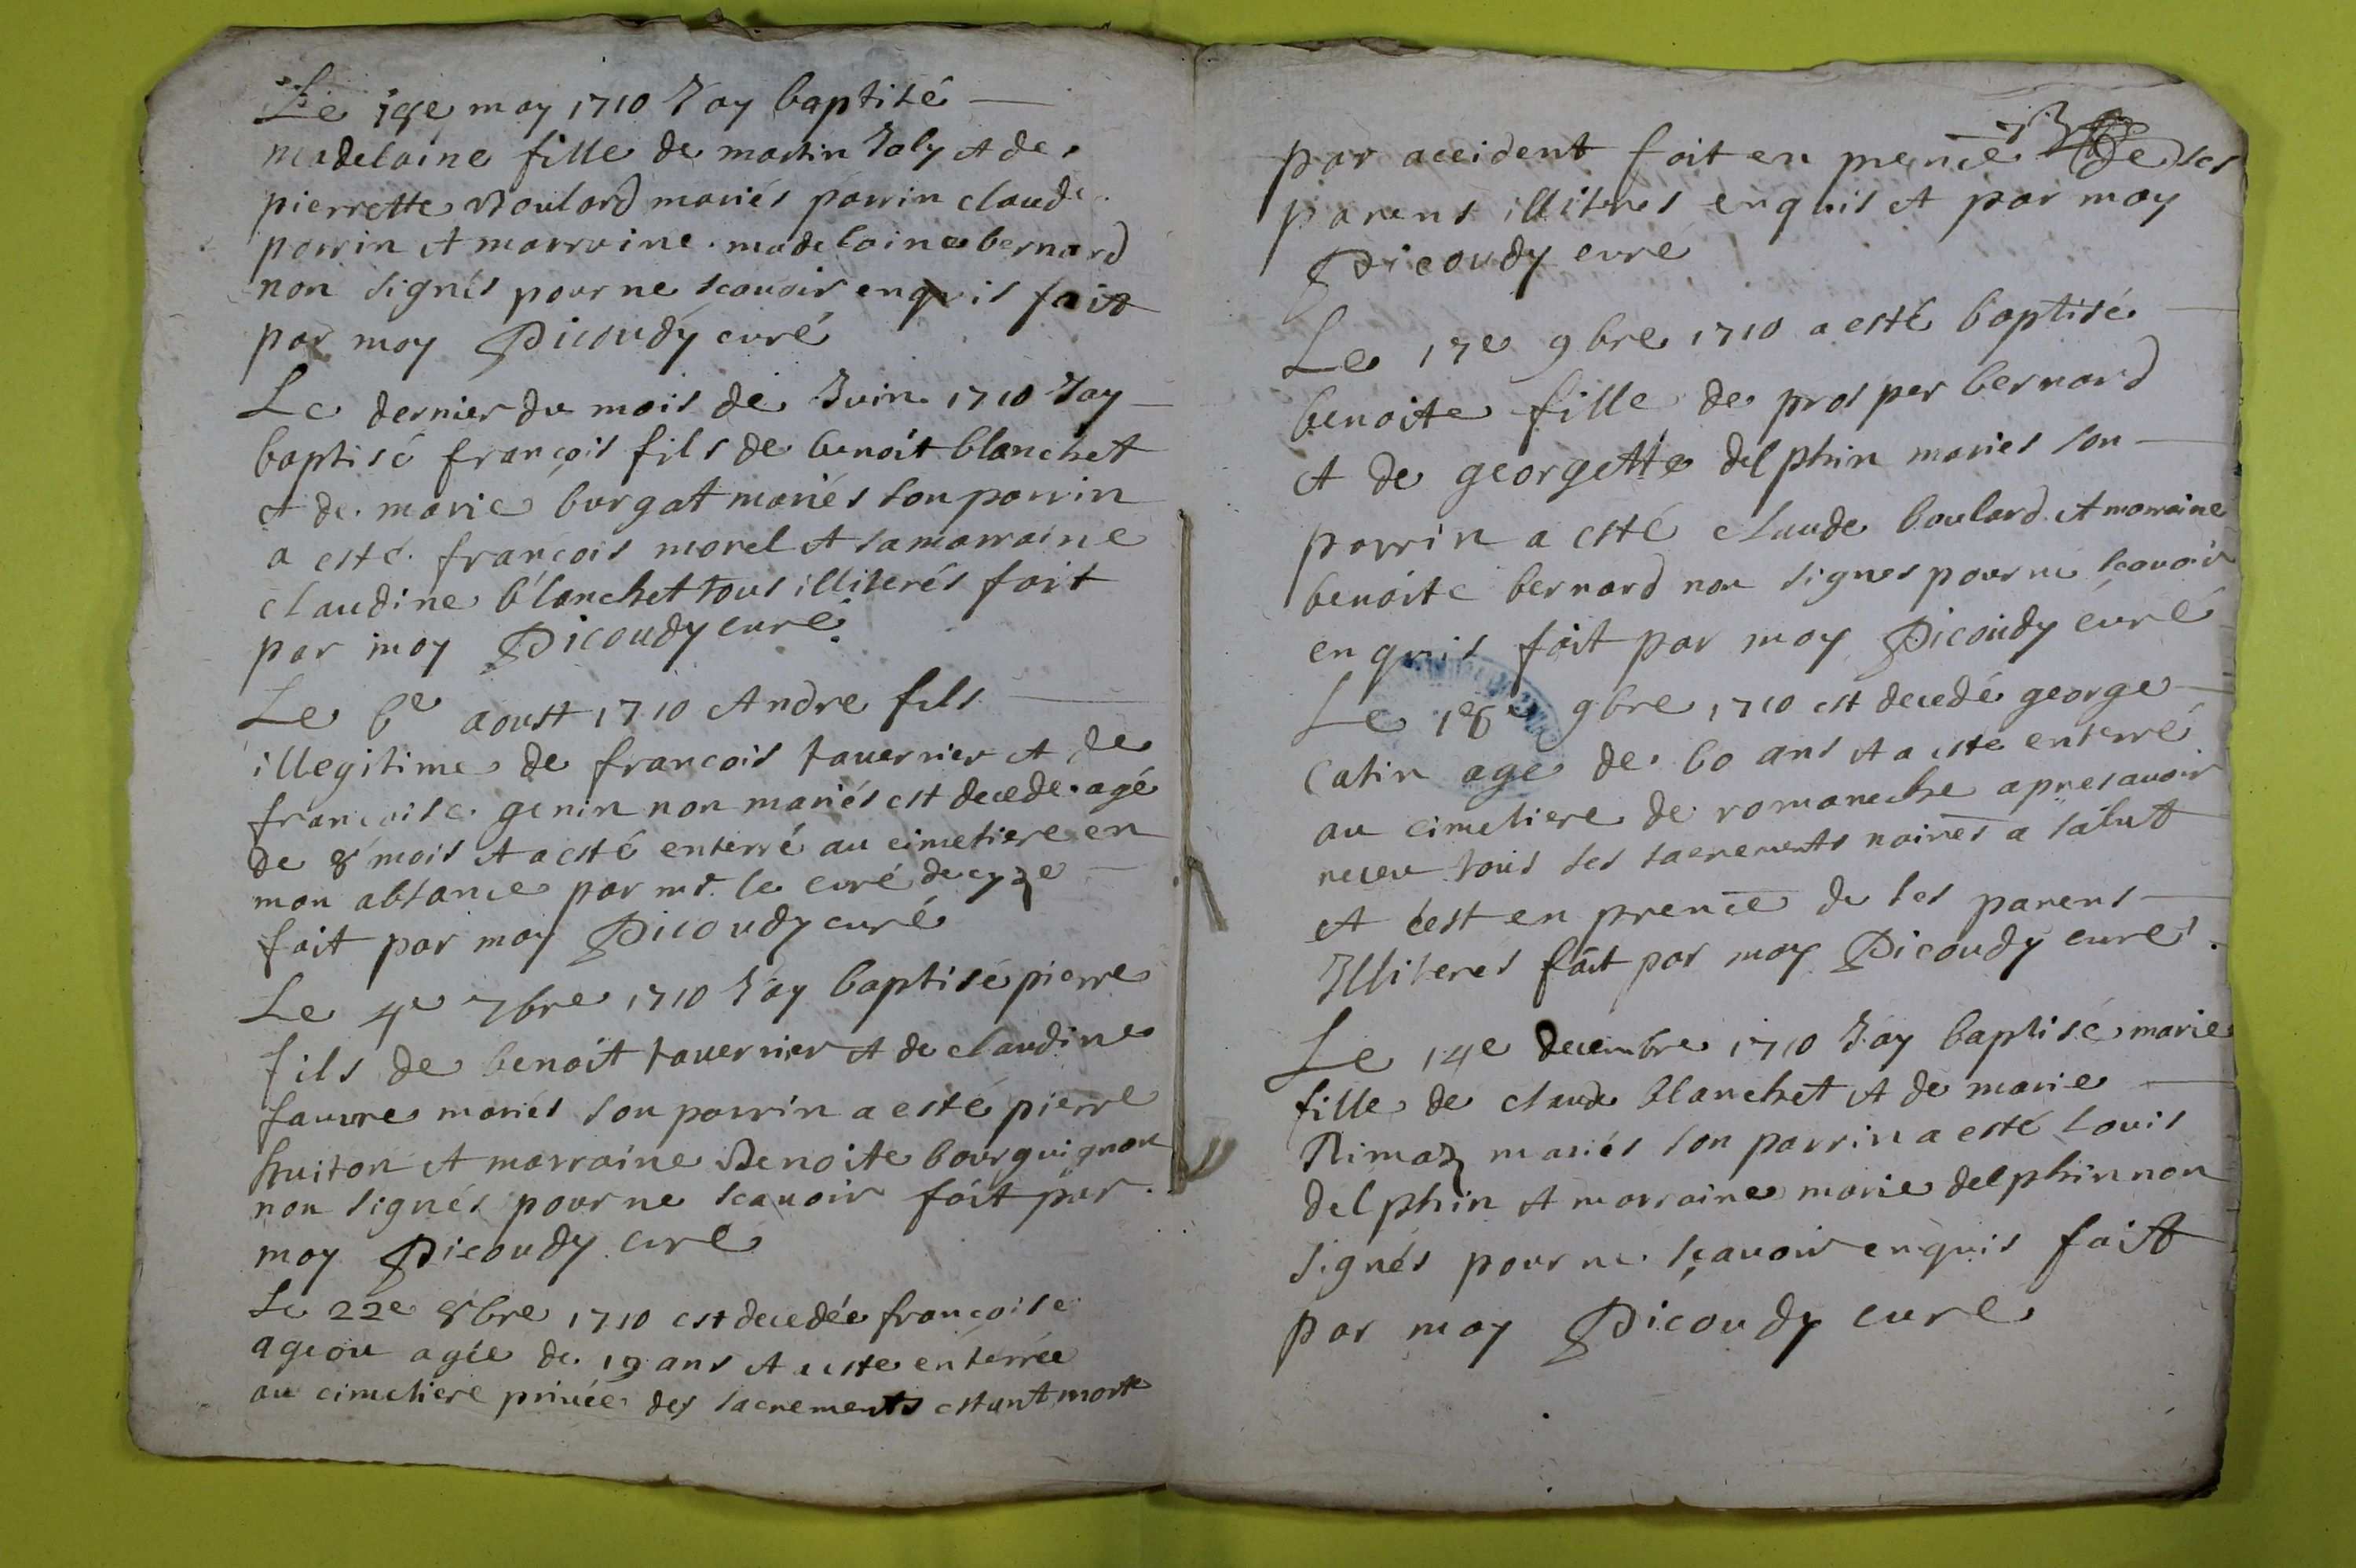 Le 18e may 1710 Jay baptisé
madelaine fille de martin Joly et de
pierrette Boulard mariés parrin claude
perrin et marraine madelaine bernard
non signés pour ne scavoir enquis fait
par moy Dicoudy curé
Le dernier du mois de Juin 1710 Jay
baptisé françois fils de benoit blanchet
et de marie burgat mariés son parrin
a esté françois morel et sa marraine
claudine blanchet tous illiterés fait
par moy Dicoudy curé
Le 6e aoust 1710 Andre fils
illegitime de francois tavernier et de
francoise genin non mariés est decede agé
de 8 mois et a esté enterré au cimetiere en
mon absance par mr. le curé de cyze
fait par moy Dicoudy curé
Le 4e 7bre 1710 Jay baptisé pierre
fils de benoit tavernier et de claudine
fauvre mariés son parrin a esté pierre
huiton et marraine Benoite bourguignon
non signés pour ne scavoir fait par
moy Dicoudy curé
Le 22e 8bre 1710 est decedée françoise
agée de 19 ans et a este enterrée
au cimetiere privée des sacrements estant morte
par accident fait en prence de ses
parens illiteres enquis et par moy
Dicoudy curé
Le 17e 9bre 1710 a esté baptisé
benoite fille de prosper bernard
et de georgette delphin mariés son
parrin a esté claude boulard et marraine
benoite bernard non signes pour ne scavoir
enquis fait par moy Dicoudy curé
Le 18e 9bre 1710 est decedé george
Catin age de 60 ans et a esté enterré
au cimetiere de romaneche apres avoir
receu tous ses sacrements noires a salut
et cest en prence de ses parens
Illiteres fait par moy Dicoudy curé
Le 14e decembre 1710 Jay baptisé marie
fille de claude blanchet et de marie
Rimaz mariés son parrin a esté louis
delphin et marraine marie delphin non
signés pour ne sçavoir enquis fait
par moy Dicoudy curé